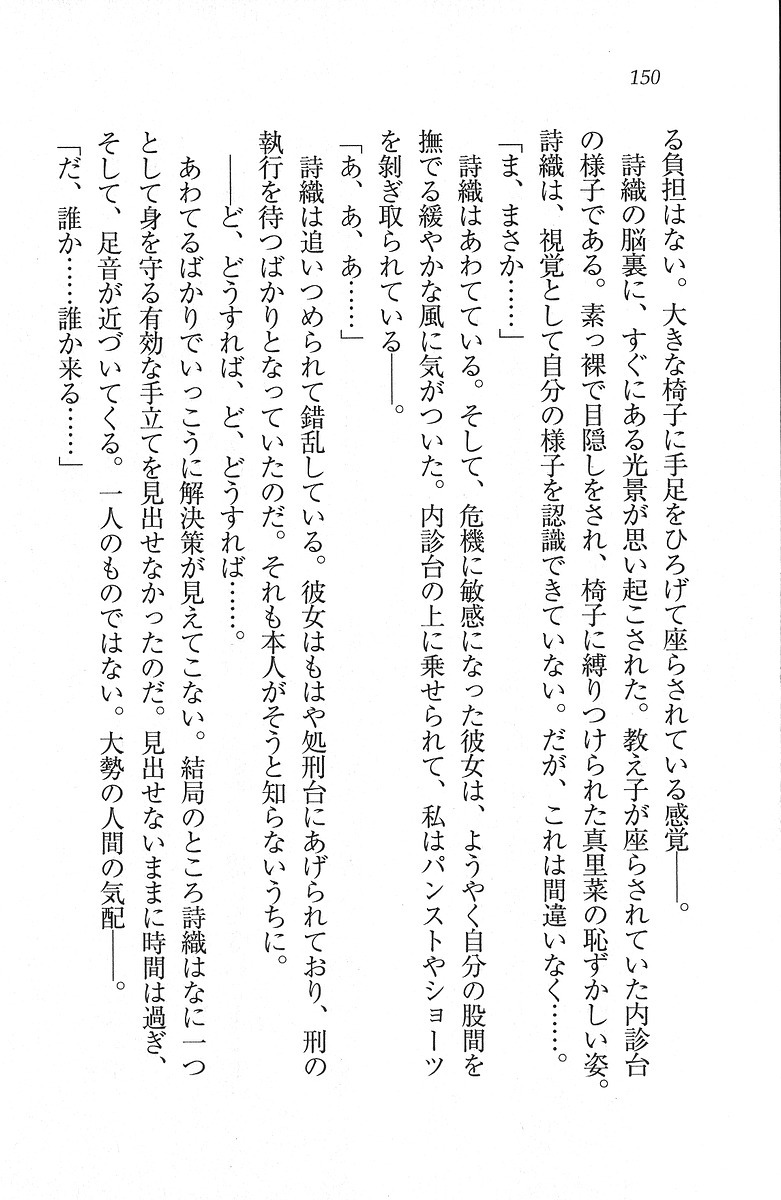 150
る負担はない。大きな椅子に手足をひろげて座らされている感覚——。
詩織の脳裏に、すぐにある光景が思い起こされた。教え子が座らされていた内診台
の様子である。素っ裸で目隠しをされ、椅子に縛りつけられた真里菜の恥ずかしい姿。
詩織は、視覚として自分の様子を認識できていない。だが、これは間違いなく……。
「ま、まさか……」
詩織はあわてている。そして、危機に敏感になった彼女は、ようやく自分の股間を
撫でる緩やかな風に気がついた。内診台の上に乗せられて、私はパンストやショーツ
を剝ぎ取られている——。
「あ、あ、あ……」
詩織は追いつめられて錯乱している。彼女はもはや処刑台にあげられており、刑の
執行を待つばかりとなっていたのだ。それも本人がそうと知らないうちに。
——ど、どうすれば、ど、どうすれば……。
あわてるばかりでいっこうに解決策が見えてこない。結局のところ詩織はなに一つ
として身を守る有効な手立てを見出せなかったのだ。見出せないままに時間は過ぎ、
そして、足音が近づいてくる。一人のものではない。大勢の人間の気配——。
「だ、誰か……誰か来る……」